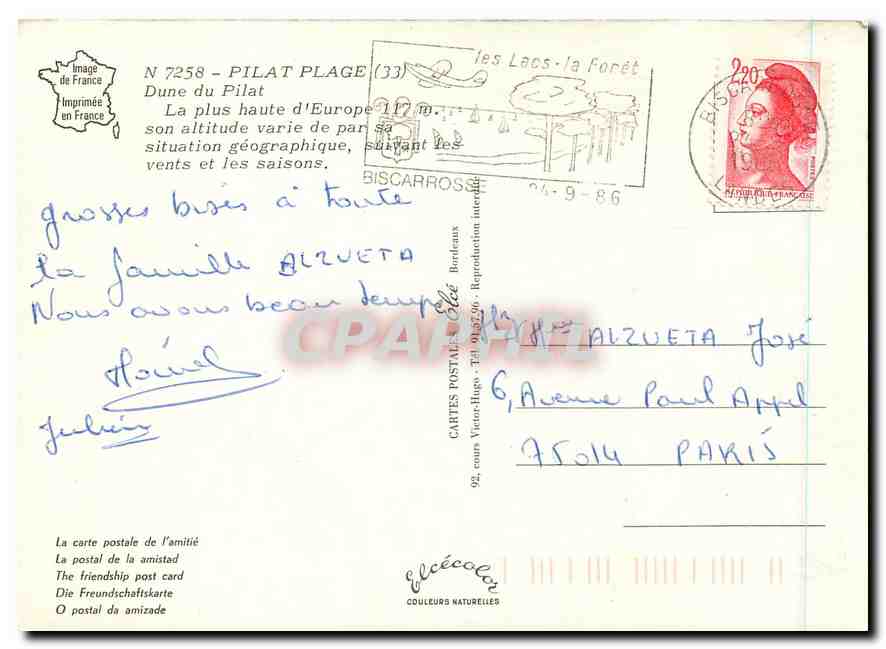 Image
de France
Imprimée
en France
N 7258 - PILAT PLAGE (33)
Dune du Pilat
La plus haute d'Europe 117 m.
son altitude varie de par sa
situation géographique, suivant les
vents et les saisons.
les Lacs - la Forêt
BISCARROSSE 24-9-86
2,20
POSTES
REPUBLIQUE FRANÇAISE
grosses bises à toute
la famille ALZUETA
Nous avons beau temps
Julien
CARTES POSTALES Elcé Bordeaux
92, cours Victor-Hugo - Tél. 91.57.96 - Reproduction interdite
CPAPHIL
ALZUETA José
6, Avenue Paul Appel
75014 PARIS
La carte postale de l'amitié
La postal de la amistad
The friendship post card
Die Freundschaftskarte
O postal da amizade
Elcécolor
COULEURS NATURELLES